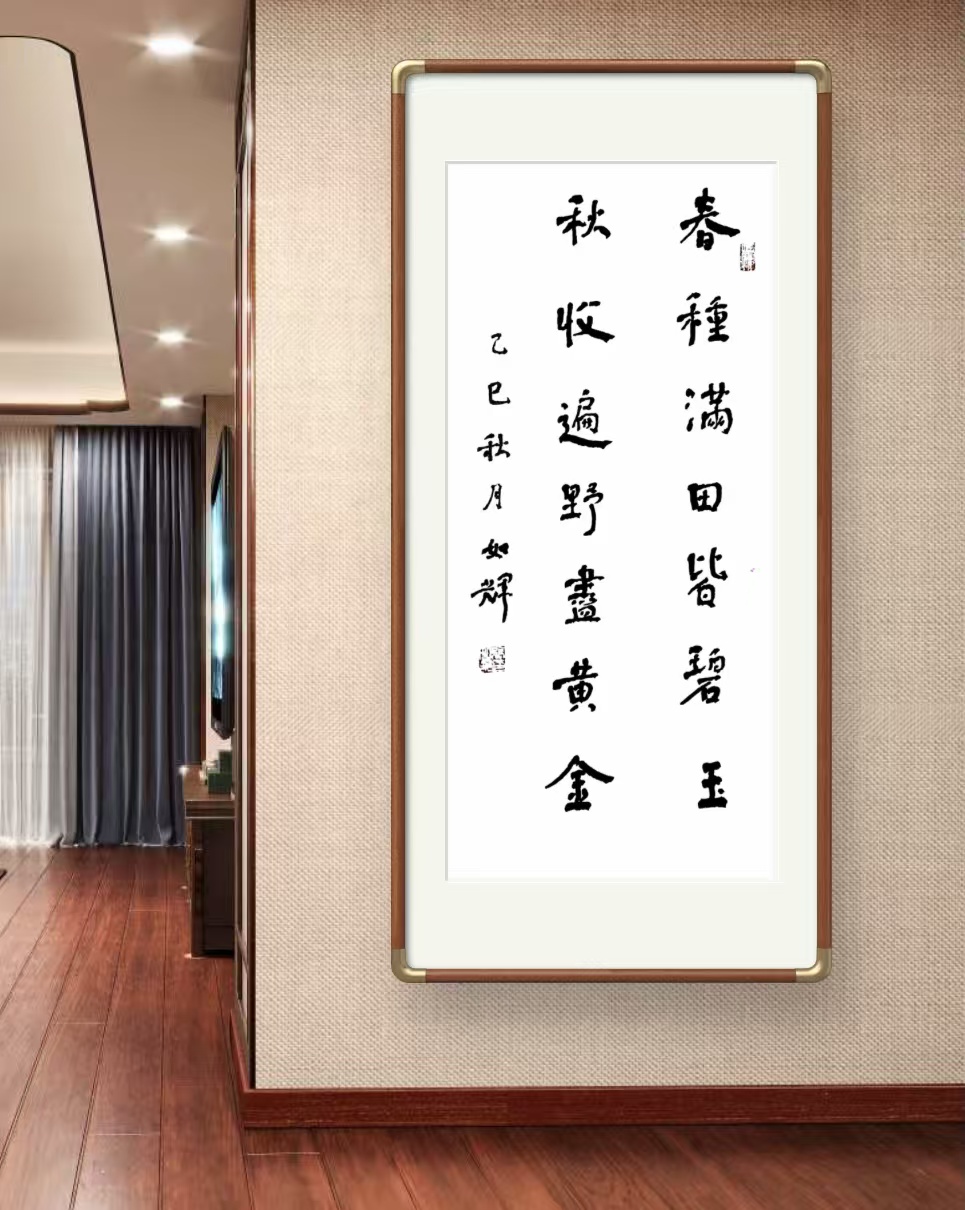 春種滿田皆碧玉
秋收遍野盡黃金
乙巳秋月如輝